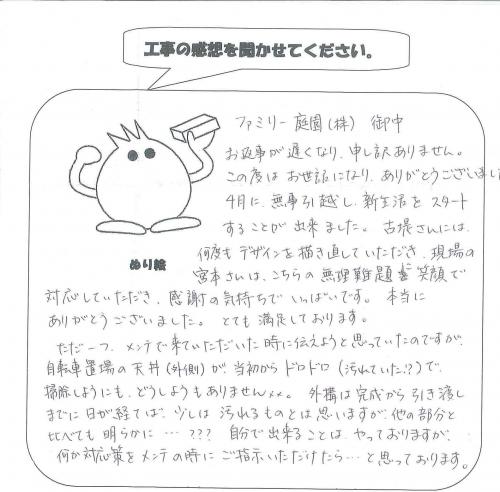 工事の感想を聞かせてください。
ファミリー庭園(株) 御中
お返事が遅くなり、申し訳ありません。
この度はお世話になり、ありがとうございまし
4月に、無事引越し、新生活をスタート
することが出来ました。古堤さんには、
何度もデザインを描き直していただき、現場の
宮本さんは、こちらの無理難題を笑顔で
ぬり絵
対応していただき、感謝の気持ちでいっぱいです。本当に
ありがとうございました。とても満足しております。
ただ一つ、メンテで来ていただいた時に伝えようと思っていたのですが、
自転車置場の天井(外側)が当初からドロドロ(汚れていた!?)で、
掃除しようにも、どうしようもありません××。外構は完成から引き渡し
までに日が経てば、少しは汚れるものとは思いますが、他の部分と
比べても明らかに…??? 自分で出来ることは、やっておりますが、
何か対応策をメンテの時にご指示いただけたら…と思っております。